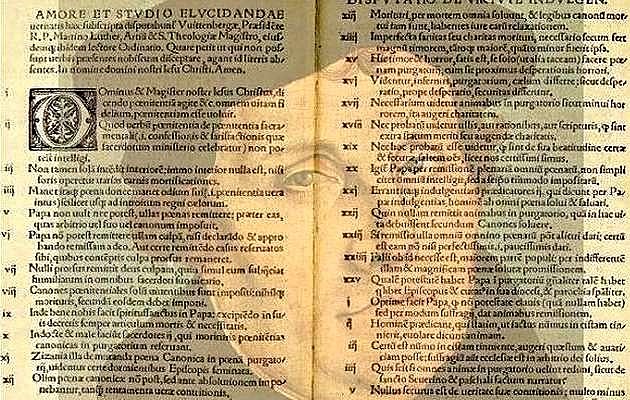 AMORE ET STUDIO ELUCIDANDAE
ueritatis hæc subscripta disputabunť Vuittenbergæ, Præsidēte
R. P. Martino Luther, Artiū & S. Theologiæ Magistro, eius-
dem ibidem lectore Ordinario. Quare petit ut qui non pos-
sunt uerbis præsentes nobiscum disceptare, agant id literis ab-
sentes. In nomine domini nostri Iesu Christi, Amen.
i Ominus & Magister noster Iesus Christus, di
cendo pœnitentiā agite &c. omnem uitam fi
delium, pœnitentiam esse uoluit.
ij Quod uerbū de pœnitentia sacra
mentali (i. confessionis & satisfactionis quæ
sacerdotum ministerio celebratur) non po-
test intelligi.
iij Non tamen solā intēdit interiorē: immo interior nulla est, nisi
foris operetur uarias carnis mortificationes.
iiij Manet itaq; pœna donec manet odium sui (i. pœnitentia uera
intus) scilicet usq; ad introitum regni cælorum.
v Papa non uult nec potest, ullas pœnas remittere: præter eas,
quas arbitrio uel suo uel canonum imposuit.
vj Papa nō potest remittere ullam culpā, nisi declarādo & appro
bando remissam a deo. Aut certe remittēdo casus reseruatos
sibi, quibus contēptis culpa prorsus remaneret.
vij Nulli prorsus remittit deus culpam, quin simul eum subijciat
humiliatum in omnibus sacerdoti suo uicario,
viij Canones pœnitentiales solū uiuentibus sunt impositi: nihilq;
morituris, secundū eosdem debet imponi.
ix Inde bene nobis facit spiritussanctus in Papa: excipiēdo in su-
is decretis semper articulum mortis & necessitatis.
x Indocte & male faciūt sacerdotes ij, qui morituris pœnitētias
canonicas in purgatorium reseruant.
xj Zizania illa de mutanda pœna Canonica in pœnā purgato-
rij, uidentur certe dormientibus Episcopis seminata.
xij Olim pœnæ canonicæ nō post, sed ante absolutionem impo-
nebantur, tanq̄ tentamenta ueræ contritionis,
DISPUTATIO DE VIRTUTE INDULGEN.
xiij Morituri, per mortem omnia soluunt, & legibus canonū mor
tui iam sunt, habentes iure earū relaxationem.
xiiij Imperfecta sanitas seu charitas morituri, necessario secum fert
magnū timorem, tātoq; maiorē, quāto minor fuerit ipsa.
xv Hic timor & horror, satis est, se solo (ut alia taceam) facere pœ-
nam purgatorij, cum sit proximus desperationis horrori.
xvj Videntur, infernus, purgatorium, cælum differre: sicut despe-
ratio, prope desperatio, securitas differunt.
xvij Necessarium uidetur animabus in purgatorio sicut minui hor-
rorem, ita augeri charitatem.
xviij Nec probatū uidetur ullis, aut rationibus, aut scripturis, q̄ sint
extra statum meriti seu augendæ charitatis.
xix Nec hoc probatū esse uidetur, q̄ sint de sua beatitudine certæ
& securæ, saltem oēs, licet nos certissimi simus.
xx Igit̃ Papa per remissionē plenariā omniū pœnarū, non simpli
citer omniū intelligit, sed a seipso tātūmodo impositarū.
xxj Errant itaq; indulgentiarū prædicatores ij, qui dicunt per Pa-
pæ indulgentias, hominē ab omni pœna solui & saluari.
xxij Quin nullam remittit animabus in purgatorio, quā in hac ui-
ta debuissent secundum Canones soluere.
xxiij Si remissio ulla omniū omnino pœnarū pōt alicui dari: certū
est eam nō nisi perfectissimis, i. paucissimis dari.
xxiiij Falli ob id necesse est, maiorem partē populi: per indifferentē
illam & magnificam pœnæ solutæ promissionem.
xxv Qualē potestatē habet Papa ī purgatoriū gñaliter talē habet
quilibet Episcopus & curat̃ in sua diocesi, & parochia spāliter,
j Optime facit Papa, q̄ nō potestate clauis (quā nullam habet)
sed per modum suffragij, dat animabus remissionem.
ij Hominē prædicant, qui statim, ut iactus nūmus in cistam tin-
nierit, euolare dicunt animam.
iij Certū est nūmo in cistam tinniente, augeri quæstum & auari-
tiam posse: suffragiū aūt ecclesiæ est in arbitrio dei solius,
iiij Quis scit si omnes animæ in purgatorio uelint redimi, sicut de
sancto Seuerino & paschali factum narratur,
v Nullus securus est de ueritate suæ contritionis, multominus